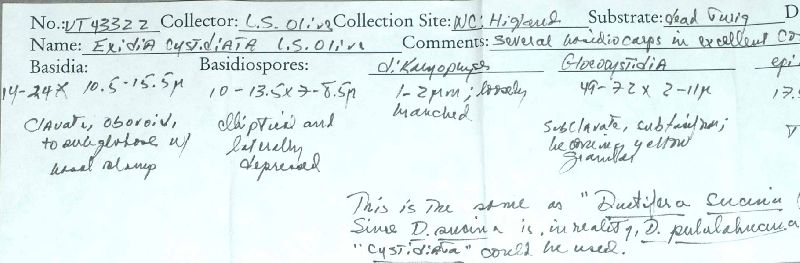 No.: VT4332 2 Collector: L.S. Olive Collection Site: NC: Highland Substrate: dead twig D
Name: Exidia cystidiata L.S. Olive Comments: several basidiocarps in excellent co
Basidia: Basidiospores: dikaryophyses Gloeocystidia epi
14-24 x 10.5-15.5µ 10-13.5 x 7-8.5µ 1-2µm; loosely 49-72 x 2-11µ 17.
branched
clavate, obovoid, elliptical and subclavate, subfusiform;
to subglobose w/ laterally becoming yellow
basal clamp depressed granular
This is the same as "Ductifera sucina
Since D. sucina is, in reality, D. pululahuana
"cystidiata" could be used.